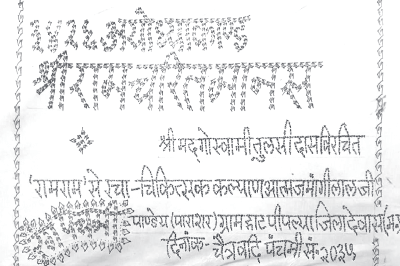 २४२६ अयोध्याकाण्ड
श्री रामचरितमानस
श्री मद् गोस्वामी तुलसी दास विरचित
'रामराम' से रचा -चिकित्सक कल्याण आत्मज मांगीलाल जी
पाण्डेय (पाराशर) ग्राम हाट पीपल्या जिला देवास (म.प्र.
दिनांक- चैत्र वदि पंचमी सं॰ २०३५